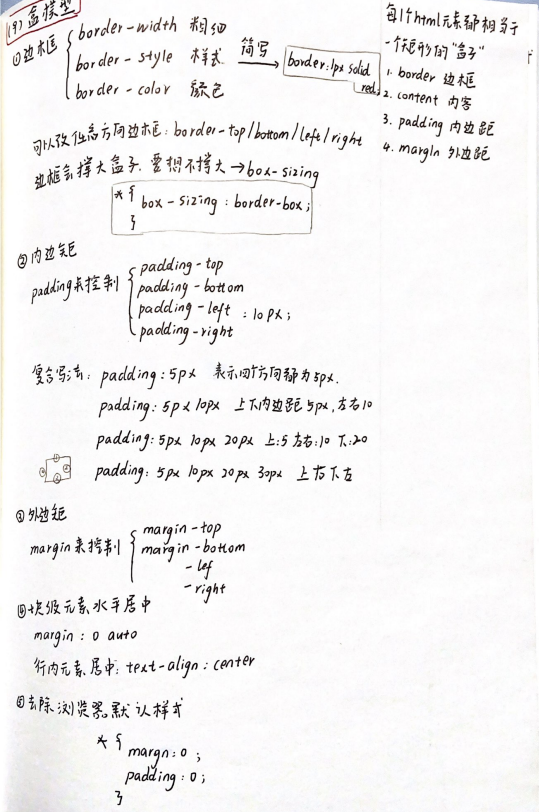 (9) 盒模型
①边框
border-width 粗细
border-style 样式
border-color 颜色
简写
border:1px solid
red;
每个html元素都相当于
一个矩形的"盒子"
1. border 边框
2. content 内容
3. padding 内边距
4. margin 外边距
可以改任意方向边框: border-top/bottom/left/right
边框会撑大盒子. 要想不撑大→box-sizing
* {
box-sizing : border-box;
}
②内边矩
padding来控制
padding-top
padding-bottom
padding-left : 10px;
padding-right
复合写法: padding:5px 表示四个方向都为5px.
padding: 5px 10px 上下内边距5px,左右10
padding:5px 10px 20px 上:5 左右:10 下:20
padding: 5px 10px 20px 30px 上右下左
③外边矩
margin来控制
margin-top
margin-bottom
-left
-right
④块级元素水平居中
margin : 0 auto
行内元素居中: text-align : center
⑤去除浏览器默认样式
* {
margn:0 ;
padding:0;
}